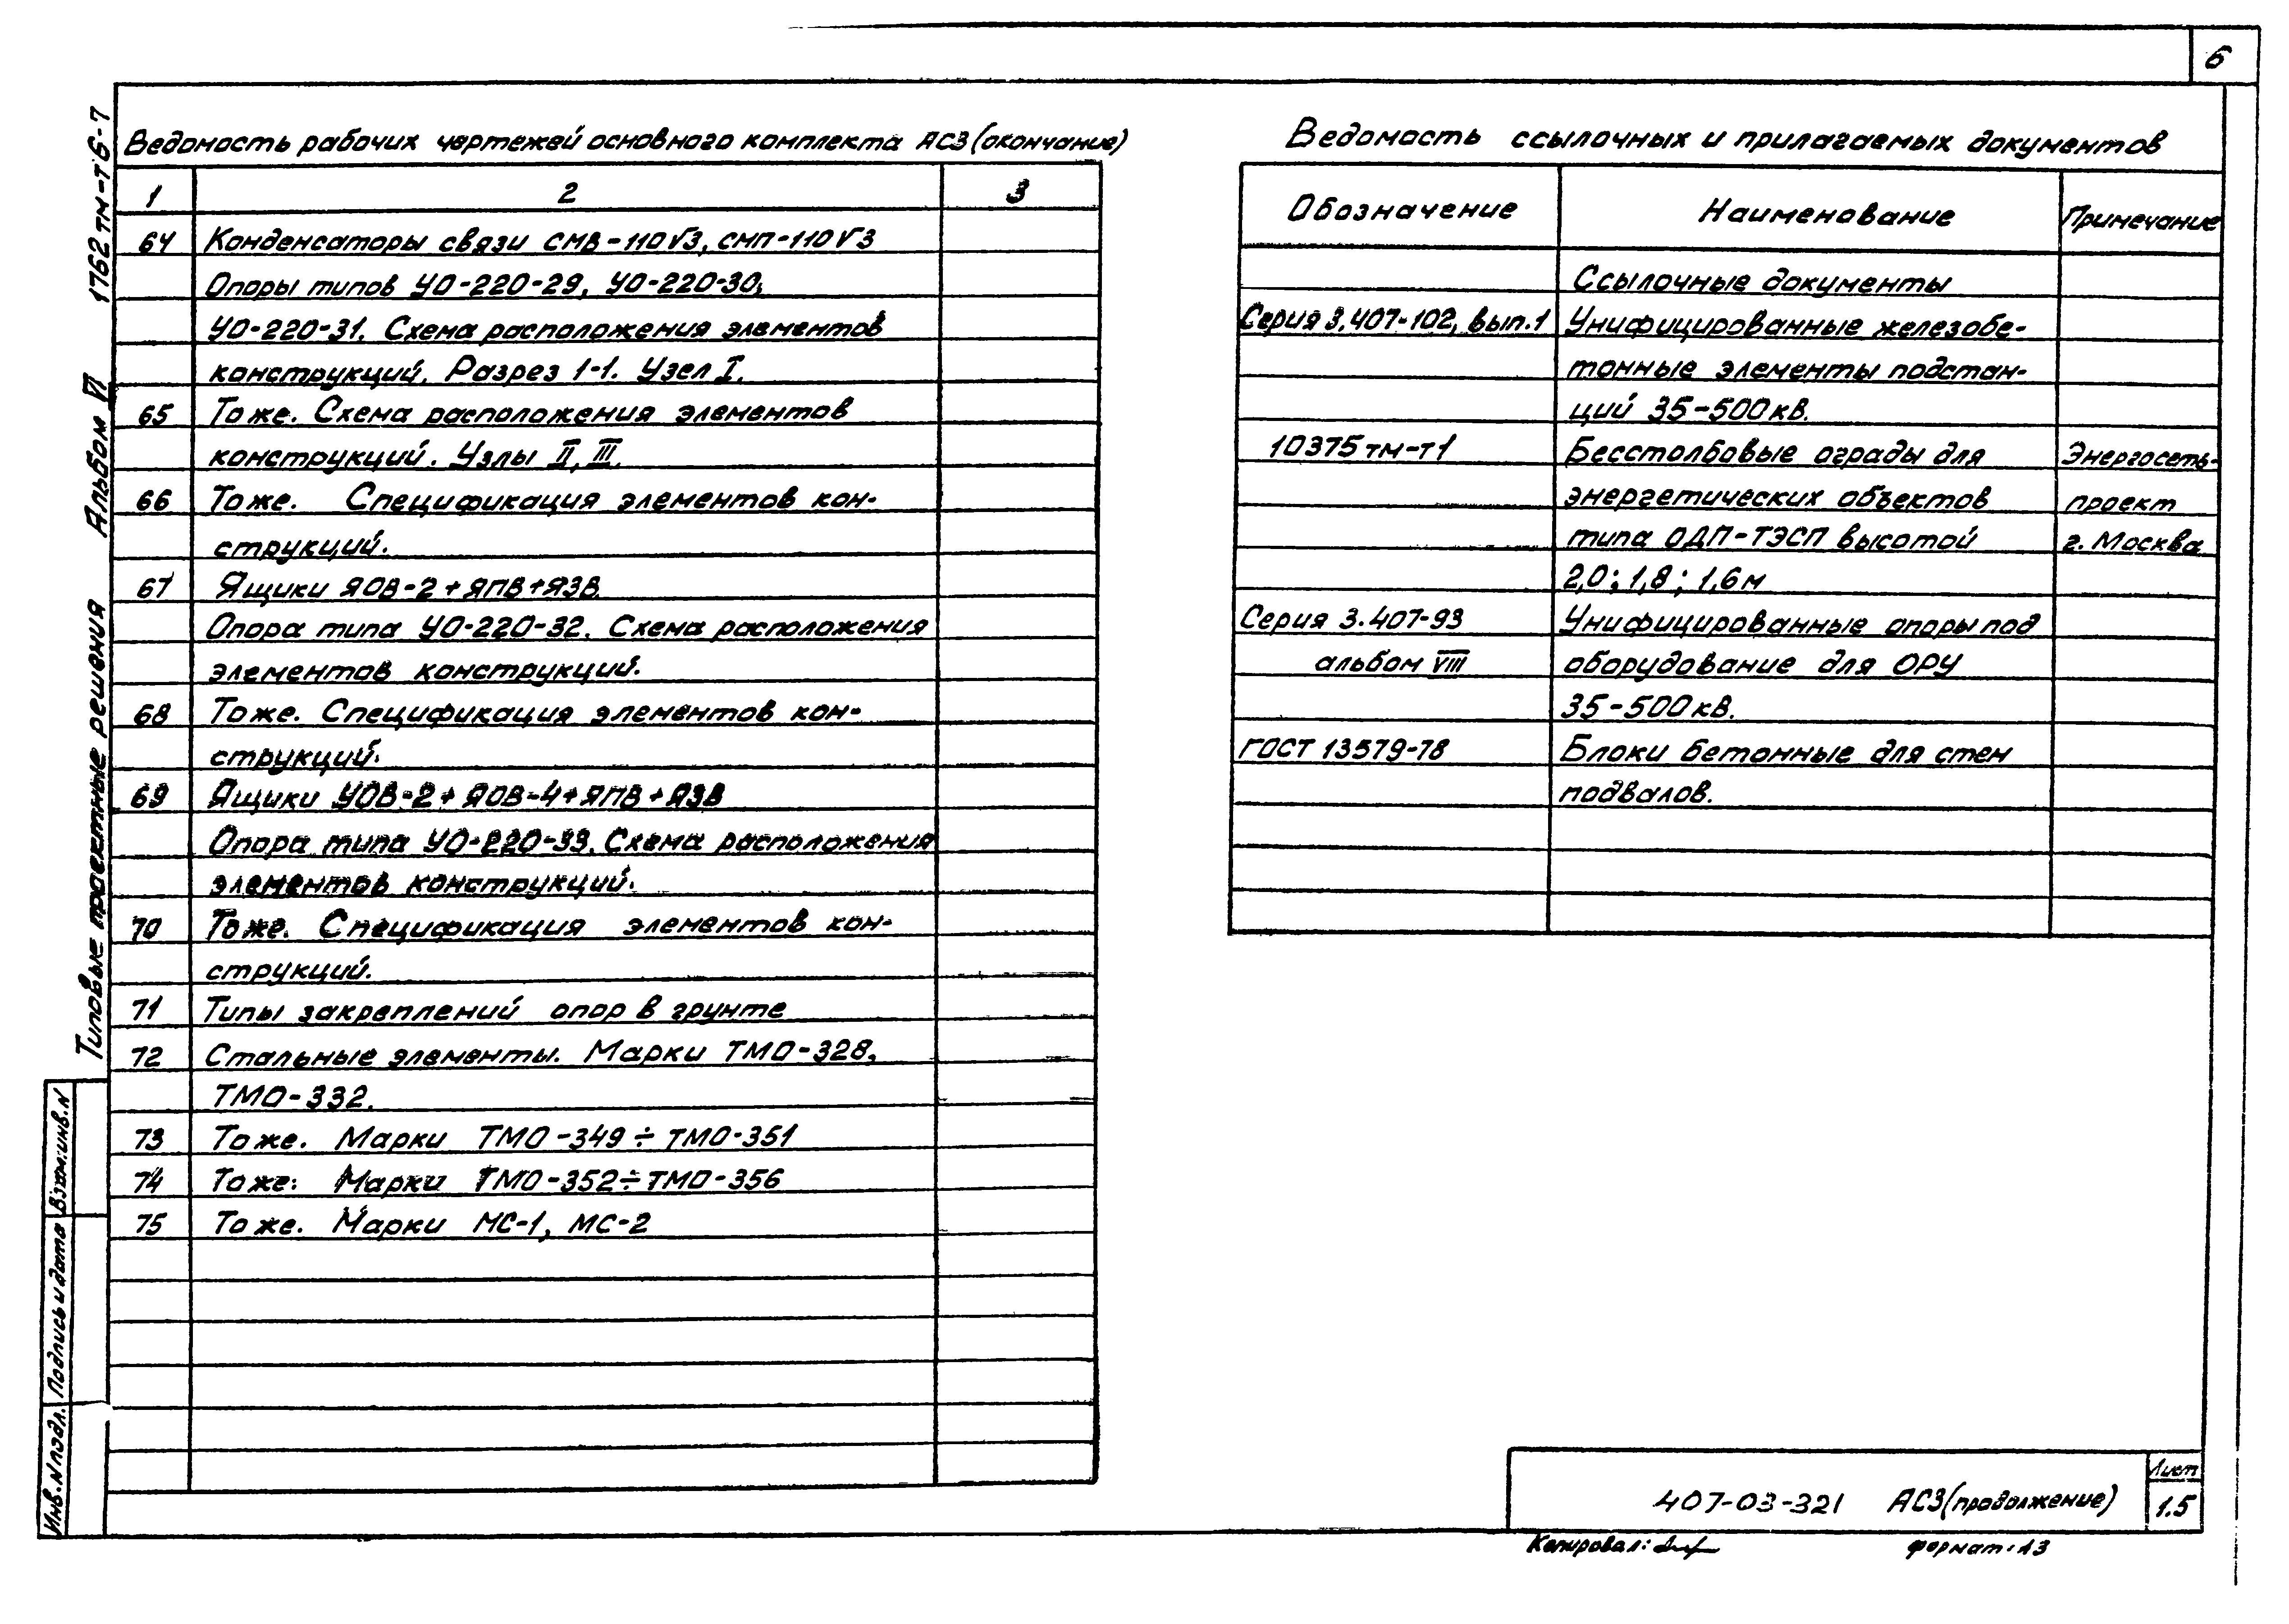 6
1762 тм-т6-7
Альбом VI
Типовые проектные решения
Ведомость рабочих чертежей основного комплекта АС3 (окончание)
1 2 3
64 Конденсаторы связи СМВ-110√3, СМП-110√3
Опоры типов УО-220-29, УО-220-30,
УО-220-31. Схема расположения элементов
конструкций. Разрез 1-1. Узел I.
65 То же. Схема расположения элементов
конструкций. Узлы II, III.
66 То же. Спецификация элементов кон-
струкций.
67 Ящики ЯОВ-2+ЯПВ+ЯЗВ
Опора типа УО-220-32. Схема расположения
элементов конструкций.
68 То же. Спецификация элементов кон-
струкций.
69 Ящики УОВ-2+ЯОВ-4+ЯПВ+ЯЗВ
Опора типа УО-220-33. Схема расположения
элементов конструкций.
70 То же. Спецификация элементов кон-
струкций.
71 Типы закреплений опор в грунте
72 Стальные элементы. Марки ТМО-328,
ТМО-332.
73 То же. Марки ТМО-349÷ТМО-351
74 То же. Марки ТМО-352÷ТМО-356
75 То же. Марки МС-1, МС-2
Ведомость ссылочных и прилагаемых документов
Обозначение Наименование Примечание
Ссылочные документы
Серия 3.407-102, вып.1 Унифицированные железобе-
тонные элементы подстан-
ций 35-500кв.
10375тм-т1 Бесстолбовые ограды для Энергосеть-
энергетических объектов проект
типа ОДП-ТЭСП высотой г. Москва
2,0; 1,8; 1,6м
Серия 3.407-93 Унифицированные опоры под
альбом VIII оборудование для ОРУ
35-500кв.
ГОСТ 13579-78 Блоки бетонные для стен
подвалов.
Инв.N подл. Подпись и дата Взам.инв.N
407-03-321 АС3 (продолжение)
Лист
1.5
Копировал:
формат: 13